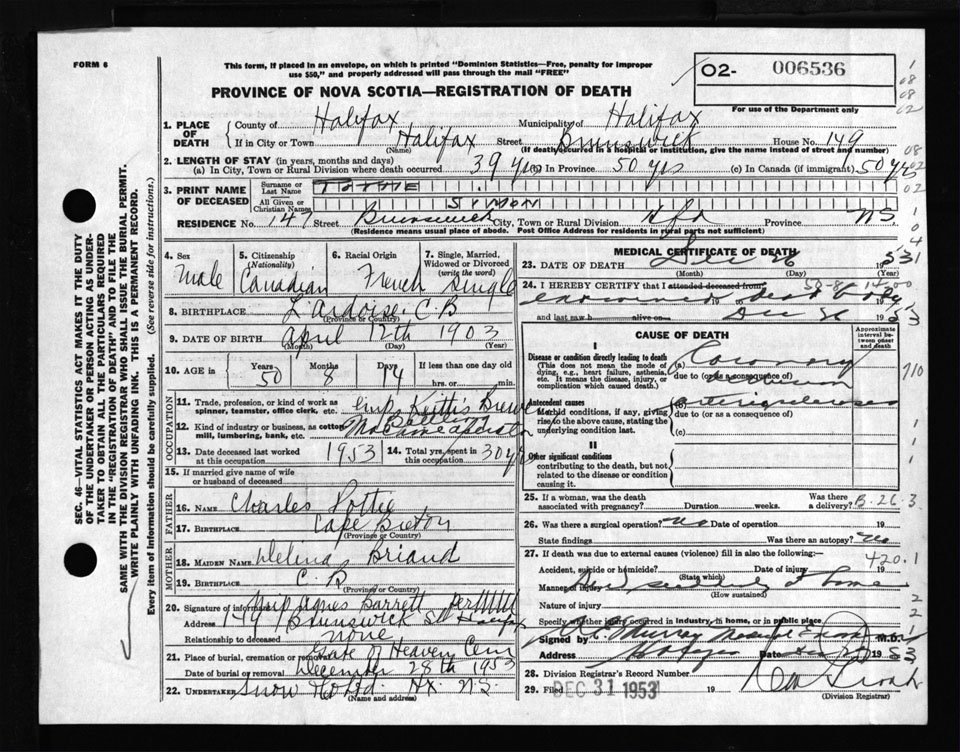 FORM 6
This form, if placed in an envelope, on which is printed "Dominion Statistics—Free, penalty for improper
use $50," and properly addressed will pass through the mail "FREE"
O2- 006536
For use of the Department only
PROVINCE OF NOVA SCOTIA—REGISTRATION OF DEATH
1. PLACE OF DEATH { County of Halifax Municipality of Halifax
If in City or Town Halifax Street Brunswick House No. 149
(Name) (If death occurred in a hospital or institution, give the name instead of street and number)
2. LENGTH OF STAY (in years, months and days)
(a) In City, Town or Rural Division where death occurred 39 yrs (b) In Province 50 yrs (c) In Canada (if immigrant) 50 yrs
3. PRINT NAME OF DECEASED { Surname or Last Name
All Given or Christian Names SIMON
RESIDENCE No. 147 Street Brunswick City, Town or Rural Division Hfx Province N.S.
(Residence means usual place of abode. Post Office Address for residents in rural parts not sufficient)
4. Sex 5. Citizenship (Nationality) 6. Racial Origin 7. Single, Married, Widowed or Divorced (write the word)
Male Canadian French Single
8. BIRTHPLACE L'Ardoise, C.B
(Province or Country)
9. DATE OF BIRTH April 12th 1903
(Month) (Day) (Year)
10. AGE in { Years 50 Months 8 Days 14 If less than one day old hrs. or min.
OCCUPATION
11. Trade, profession, or kind of work as spinner, teamster, office clerk, etc.
12. Kind of industry or business, as cotton mill, lumbering, bank, etc.
13. Date deceased last worked at this occupation 1953 14. Total yrs. spent in this occupation 30 yrs
15. If married give name of wife or husband of deceased
FATHER
16. Name Charles Pottie
17. Birthplace Cape Breton
(Province or Country)
MOTHER
18. Maiden Name Delina Briand
19. Birthplace C. B
(Province or Country)
20. Signature of informant Agnes Barrett
Address 149 Brunswick St Halifax
Relationship to deceased none
21. Place of burial, cremation or removal Gate of Heaven Cem
Date of burial or removal December 28th 1953
22. UNDERTAKER Snow Hx. N.S.
(Name and address)
MEDICAL CERTIFICATE OF DEATH
23. DATE OF DEATH Dec 26 1953
(Month) (Day)
24. I HEREBY CERTIFY that I attended deceased from
examined dead body
and last saw h alive on Dec 26 1953
CAUSE OF DEATH
Approximate interval between onset and death
I
Disease or condition directly leading to death
(This does not mean the mode of dying, e.g., heart failure, asthenia, etc. It means the disease, injury, or complication which caused death.)
(a) Coronary
due to (or as a consequence of)
Antecedent causes
Morbid conditions, if any, giving rise to the above cause, stating the underlying condition last.
(b) arteriosclerosis
due to (or as a consequence of)
(c)
II
Other significant conditions
contributing to the death, but not related to the disease or condition causing it.
25. If a woman, was the death associated with pregnancy? Duration weeks. Was there a delivery?
26. Was there a surgical operation? No Date of operation 19
State findings Was there an autopsy? No
27. If death was due to external causes (violence) fill in also the following:—
Accident, suicide or homicide? Date of injury 19
(State which)
Manner of injury Died suddenly at home
(How sustained)
Nature of injury
Specify whether injury occurred in industry, in home, or in public place
Signed by Murray Medical M.D.
Address Halifax Date 1953
28. Division Registrar's Record Number
29. Filed DEC 31 1953 19
(Division Registrar)
420.1
SEC. 46—VITAL STATISTICS ACT MAKES IT THE DUTY
OF THE UNDERTAKER OR PERSON ACTING AS UNDER-
TAKER TO OBTAIN ALL THE PARTICULARS REQUIRED
IN THE "REGISTRATION OF DEATH" AND TO FILE THE
SAME WITH THE DIVISION REGISTRAR WHO SHALL ISSUE THE BURIAL PERMIT.
WRITE PLAINLY WITH UNFADING INK. THIS IS A PERMANENT RECORD.
Every item of information should be carefully supplied. (See reverse side for instructions).